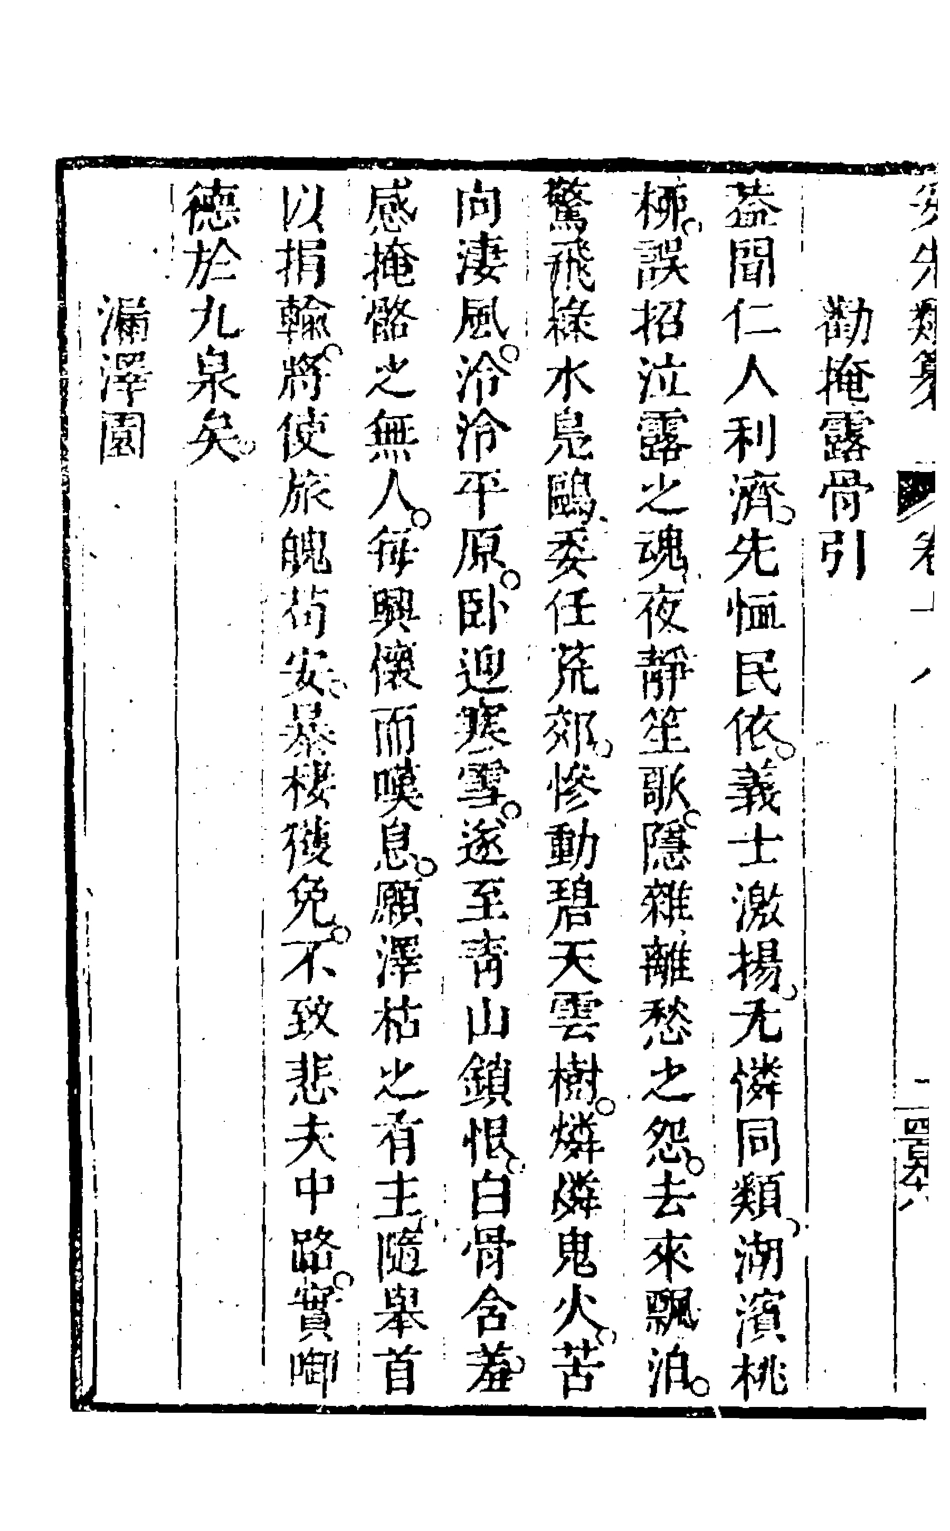 勸掩露骨引
葢聞仁人利濟。先恤民依。義士激揚。尢憐同類。湖濱桃
栁。誤招泣露之魂。夜靜笙歌。隱雜離愁之怨。去來飄泊。
驚飛綠水鳧鷗。委任荒郊。慘動碧天雲樹。燐燐鬼火。苦
向淒風。泠泠平原。卧迎寒雪。遂至靑山鎖恨。白骨含羞。
感掩骼之無人。每興懷而嘆息。願澤枯之有主。隨舉首
以捐輸。將使旅魄苟安。暴棲獲免。不致悲夫中路。實啣
德於九泉矣。
漏澤園